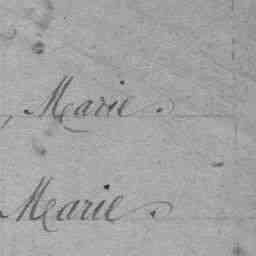 , Marie.
Marie.